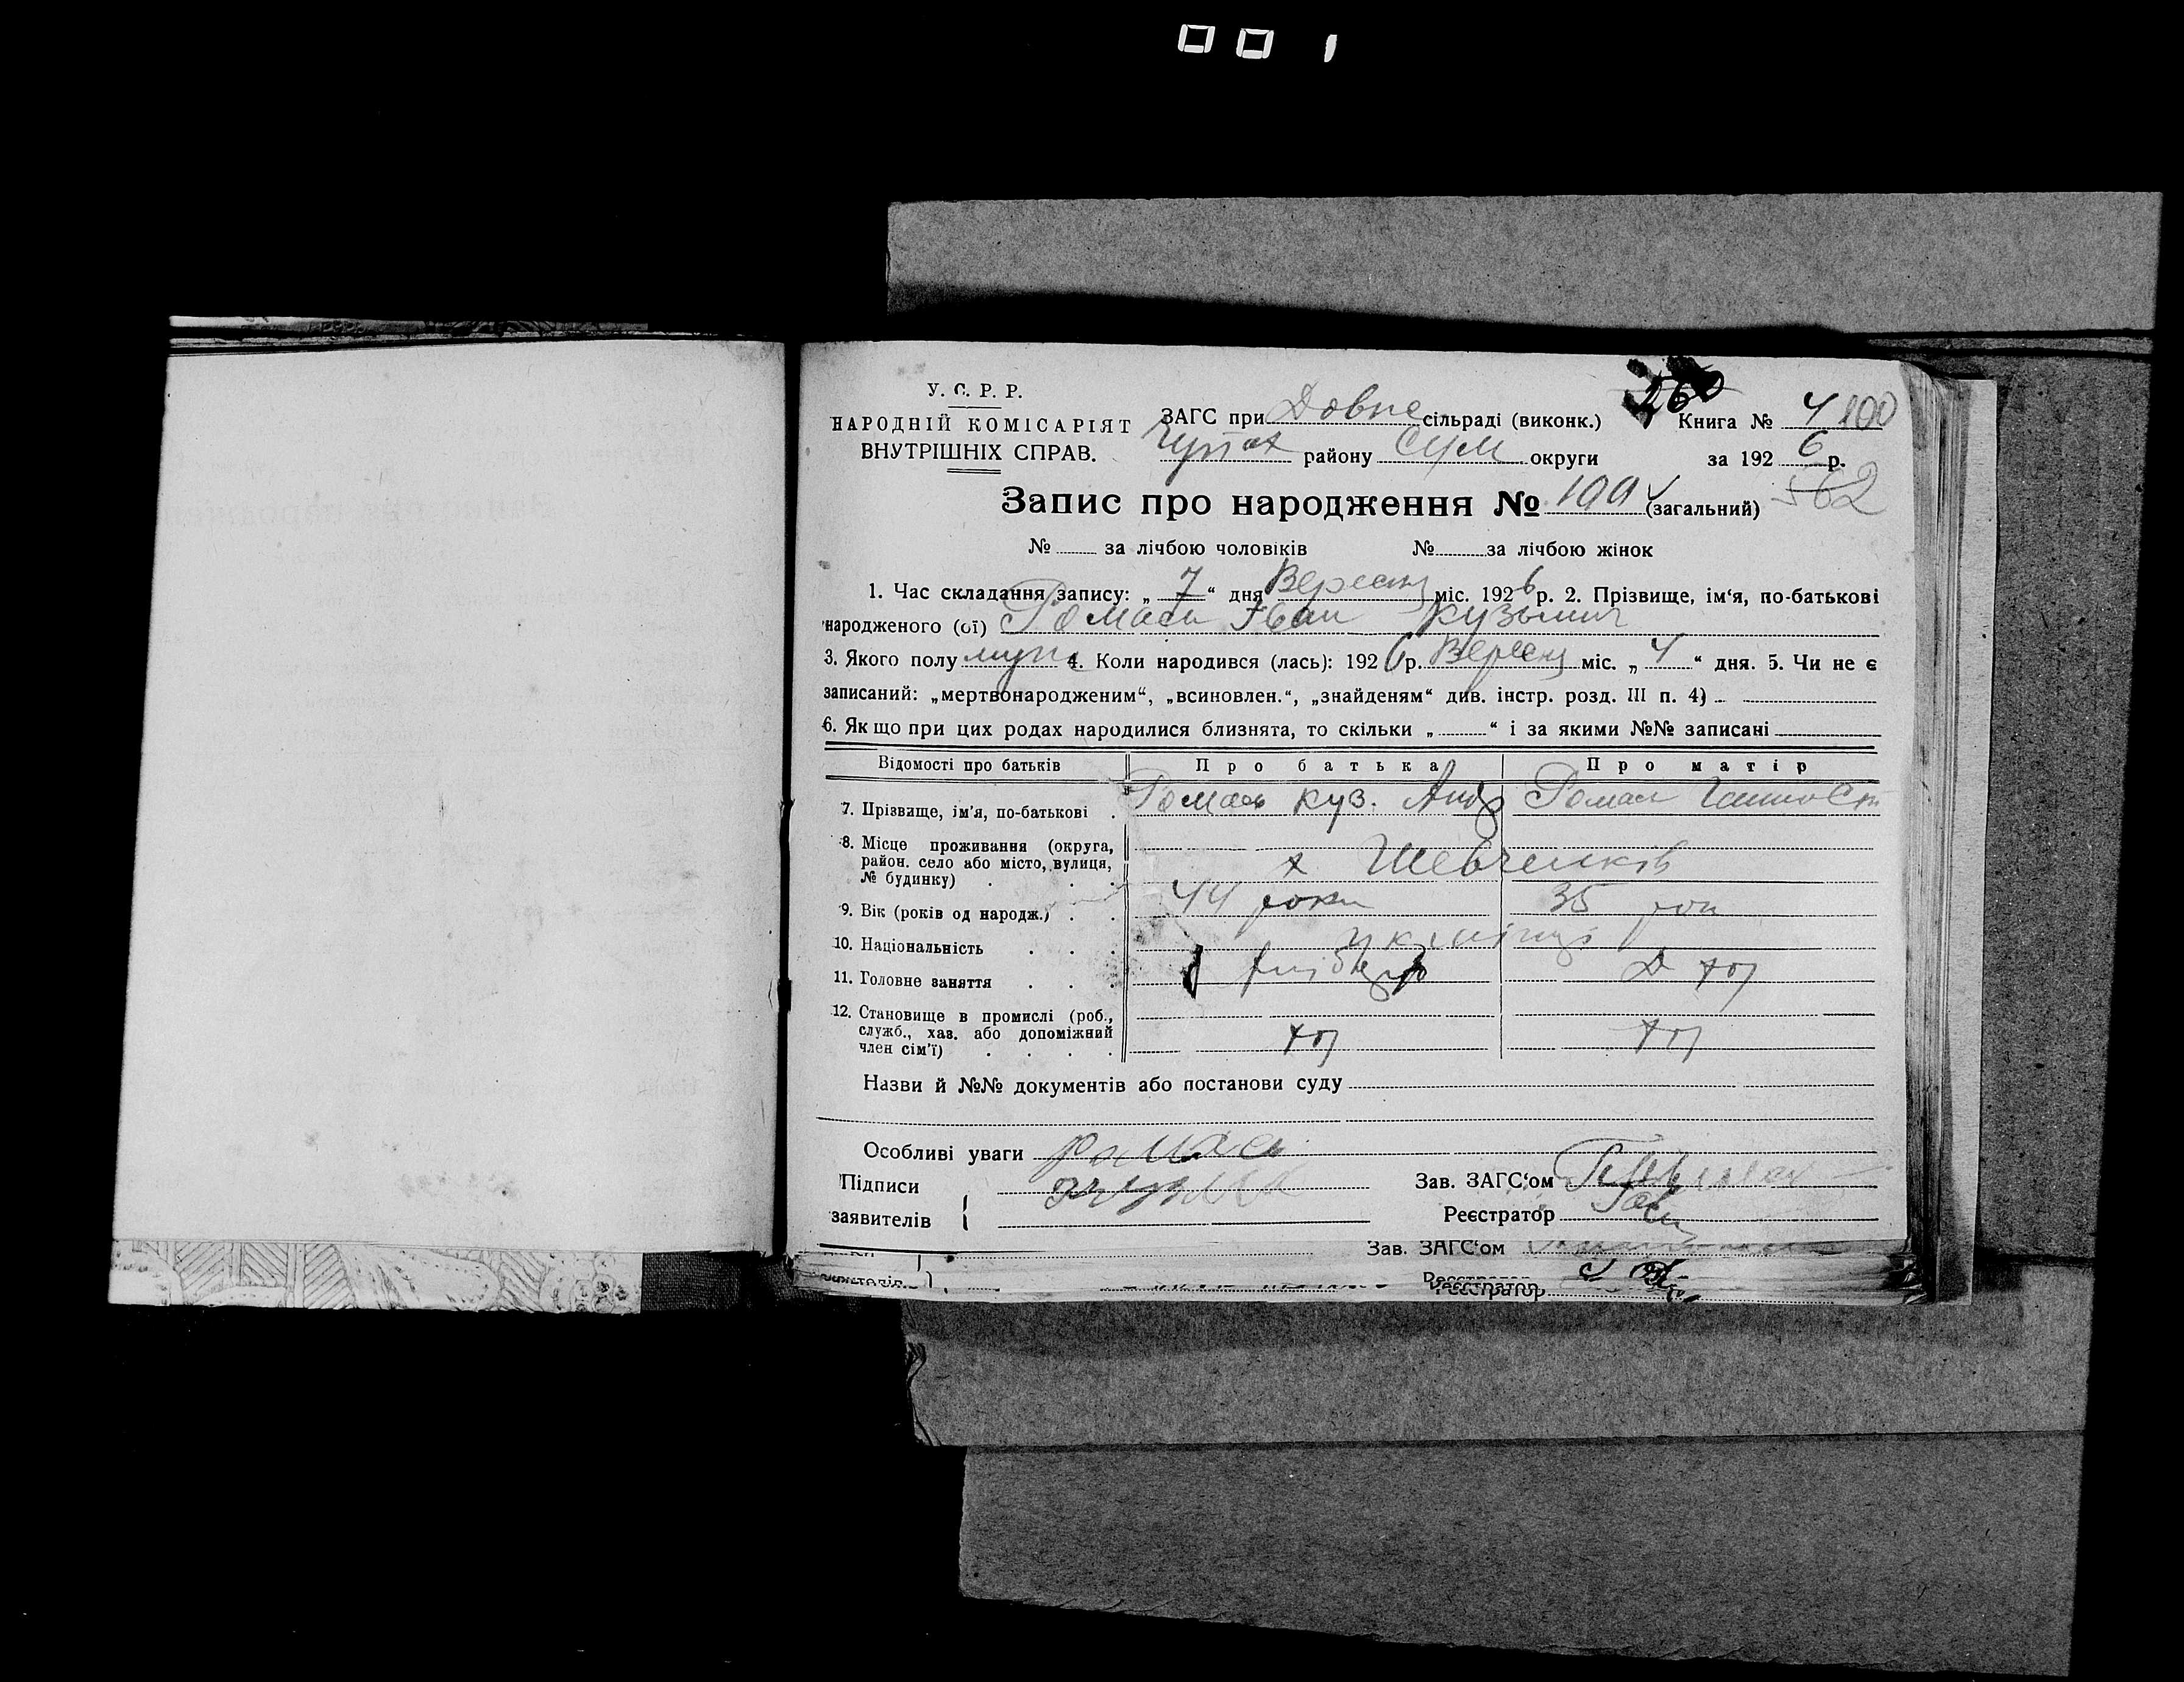 001
260
У. С. Р. Р.
НАРОДНІЙ КОМІСАРІЯТ
ВНУТРІШНІХ СПРАВ.
ЗАГС при Довже сільраді (виконк.) Книга № 4 100
Чупах району Сум округи за 1926 р.
Запис про народження № 100 (загальний) 562
№ за лічбою чоловіків № за лічбою жінок
1. Час складання запису: „7“ дня Вересня міс. 1926 р. 2. Прізвище, ім‘я, по-батькові
народженого (ої) Ромась Іван Кузьмич
3. Якого полу муж 4. Коли народився (лась): 1926 р. Вересня міс. „4“ дня. 5. Чи не є
записаний: „мертвонародженим“, „всиновлен.“, „знайденям“ див. інстр. розд. III п. 4)
6. Якщо при цих родах народилися близнята, то скільки „ “ і за якими №№ записані
Відомості про батьків Про батька Про матір
7. Прізвище, ім'я, по-батькові Ромась Куз. Анд Ромась
8. Місце проживання (округа,
район. село або місто, вулиця,
№ будинку) х Шевченків
9. Вік (років од народж.) 44 роки 35 рок
10. Національність українці
11. Головне заняття хлібороб Д тож
12. Становище в промислі (роб.,
служб., хаз. або допоміжний
член сім'ї) тож тож
Назви й №№ документів або постанови суду
Особливі уваги Ромась
Підписи
заявителів
Зав. ЗАГС‘ом
Реєстратор
Зав. ЗАГС‘ом
Реєстратор